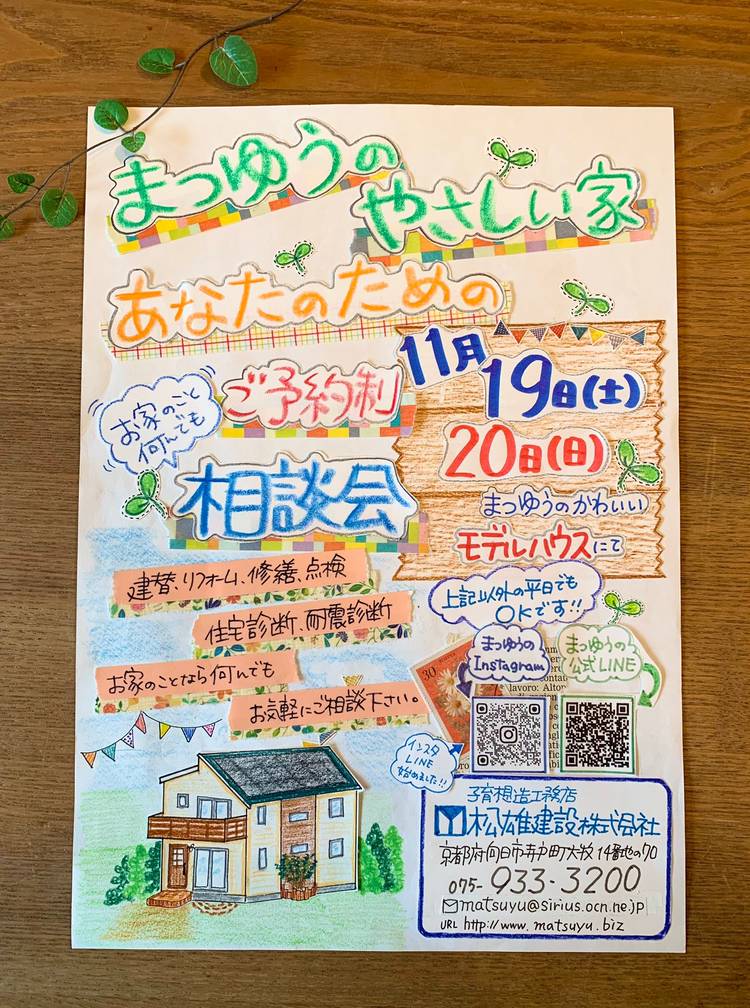 まつゆうの
やさしい家
あなたのための
お家のこと
何んでも
ご予約制
相談会
11月
19日(土)
20日(日)
まつゆうのかわいい
モデルハウスにて
上記以外の平日でも
OKです!!
建替、リフォーム、修繕、点検
住宅診断、耐震診断
お家のことなら何んでも
お気軽にご相談下さい。
まつゆうの
Instagram
まつゆうの
公式LINE
30
lavoro:
インスタ
LINE
始めました!!
子育想造工務店
松雄建設株式会社
京都府向日市寺戸町大牧14番地の70
075-933-3200
matsuyu@sirius.ocn.ne.jp
URL http://www.matsuyu.biz